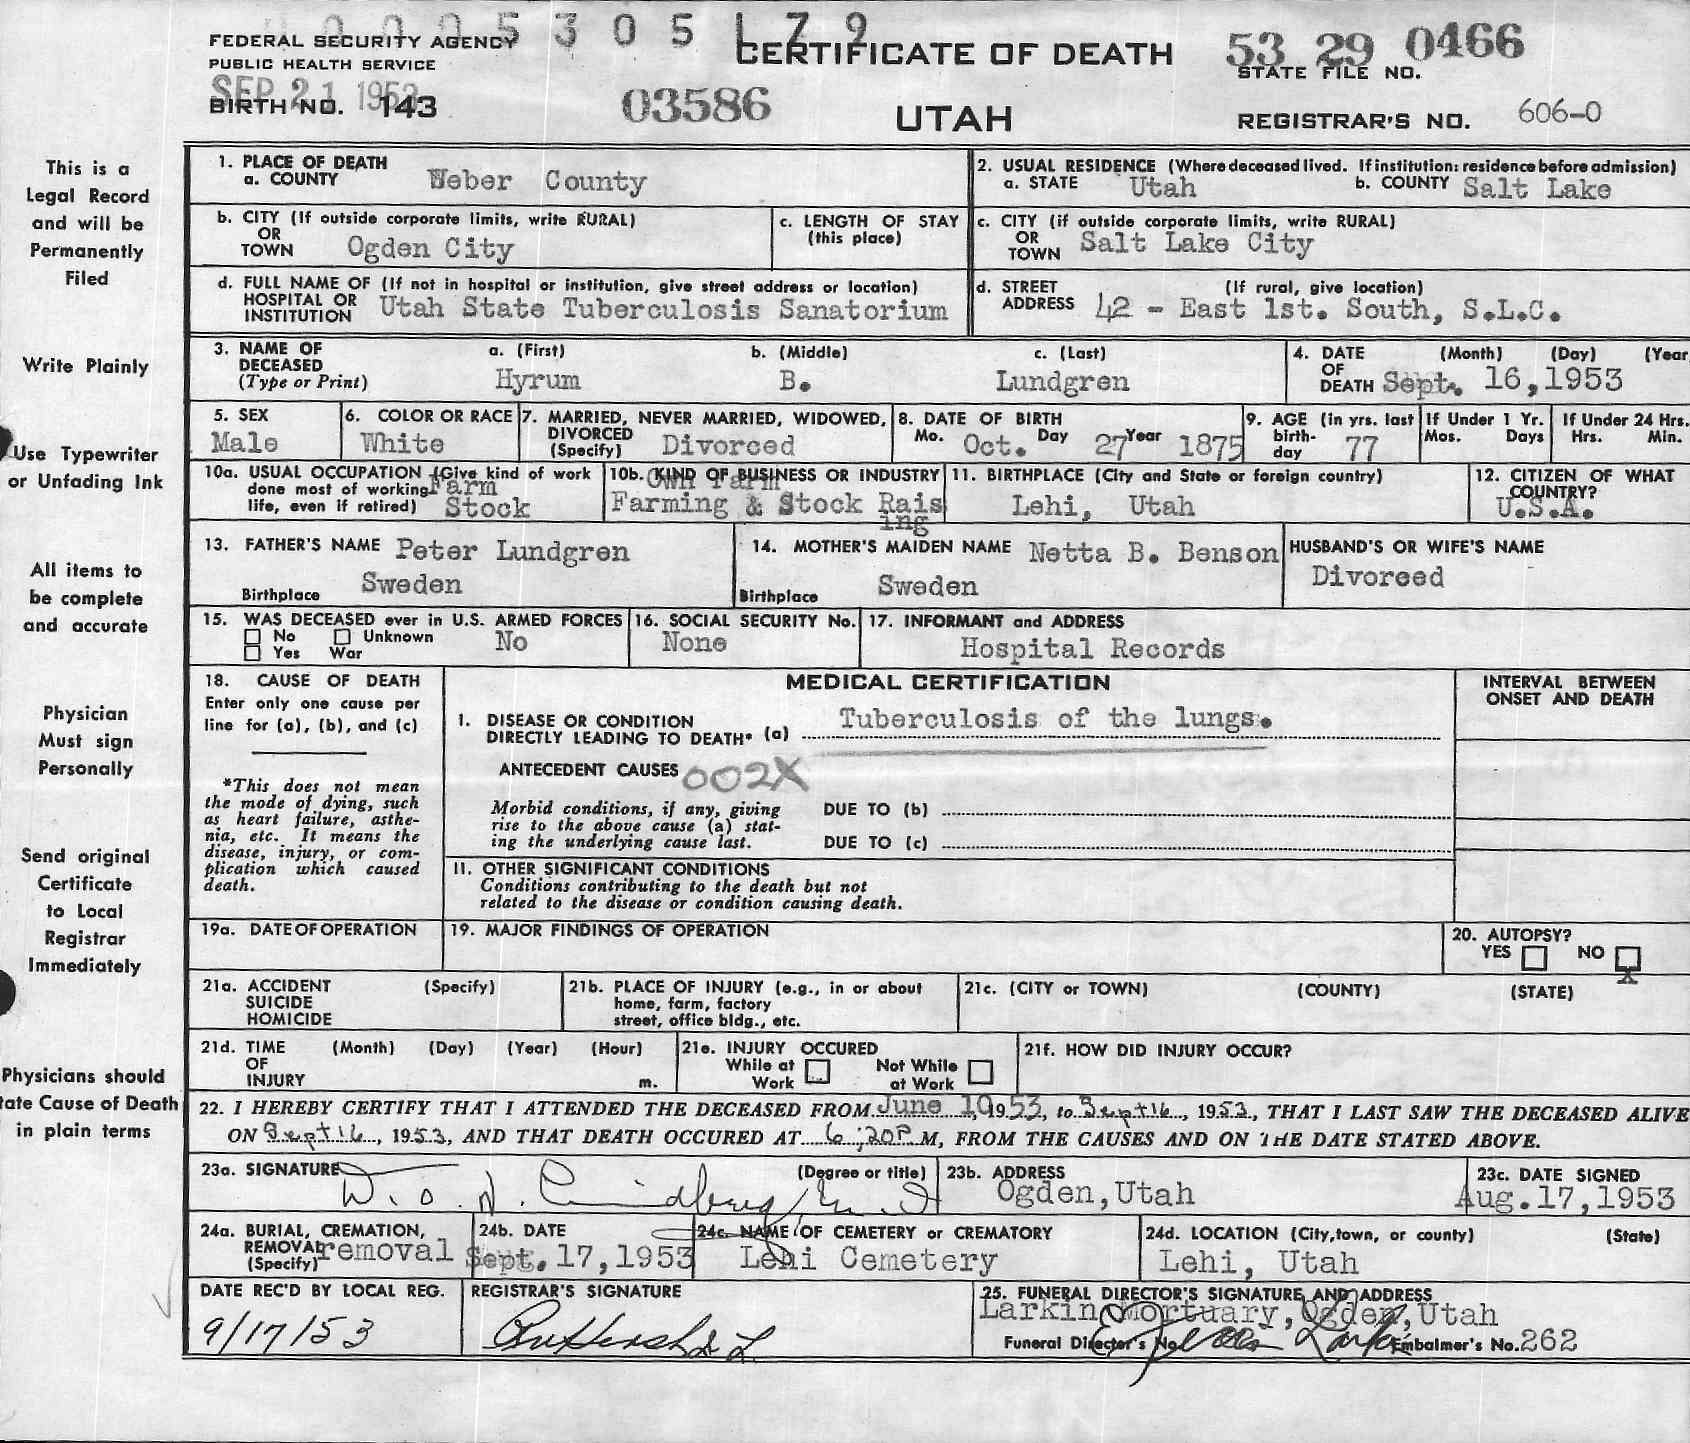 0005305179
FEDERAL SECURITY AGENCY
PUBLIC HEALTH SERVICE
CERTIFICATE OF DEATH
53 29 0466
STATE FILE NO.
SEP 21 1953
BIRTH NO. 143
03586
UTAH
REGISTRAR'S NO. 606-0
This is a
Legal Record
and will be
Permanently
Filed
Write Plainly
Use Typewriter
or Unfading Ink
All items to
be complete
and accurate
Physician
Must sign
Personally
Send original
Certificate
to Local
Registrar
Immediately
Physicians should
tate Cause of Death
in plain terms
1. PLACE OF DEATH
a. COUNTY Weber County
2. USUAL RESIDENCE (Where deceased lived. If institution: residence before admission)
a. STATE Utah b. COUNTY Salt Lake
b. CITY (If outside corporate limits, write RURAL)
OR
TOWN Ogden City
c. LENGTH OF STAY
(this place)
c. CITY (if outside corporate limits, write RURAL)
OR
TOWN Salt Lake City
d. FULL NAME OF (If not in hospital or institution, give street address or location)
HOSPITAL OR
INSTITUTION Utah State Tuberculosis Sanatorium
d. STREET (If rural, give location)
ADDRESS 42 - East 1st. South, S.L.C.
3. NAME OF
DECEASED
(Type or Print)
a. (First) b. (Middle) c. (Last)
Hyrum B. Lundgren
4. DATE (Month) (Day) (Year
OF
DEATH Sept. 16,1953
5. SEX
Male
6. COLOR OR RACE
White
7. MARRIED, NEVER MARRIED, WIDOWED,
DIVORCED
(Specify) Divorced
8. DATE OF BIRTH
Mo. Oct. Day 27 Year 1875
9. AGE (in yrs. last
birth-
day 77
If Under 1 Yr.
Mos. Days
If Under 24 Hrs.
Hrs. Min.
10a. USUAL OCCUPATION (Give kind of work
done most of working Farm
life, even if retired) Stock
10b. KIND OF BUSINESS OR INDUSTRY
Own Farm
Farming & Stock Rais
ing
11. BIRTHPLACE (City and State or foreign country)
Lehi, Utah
12. CITIZEN OF WHAT
COUNTRY?
U.S.A.
13. FATHER'S NAME Peter Lundgren
Birthplace Sweden
14. MOTHER'S MAIDEN NAME Netta B. Benson
Birthplace Sweden
HUSBAND'S OR WIFE'S NAME
Divorced
15. WAS DECEASED ever in U.S. ARMED FORCES
No Unknown No
Yes War
16. SOCIAL SECURITY No.
None
17. INFORMANT and ADDRESS
Hospital Records
18. CAUSE OF DEATH
Enter only one cause per
line for (a), (b), and (c)
*This does not mean
the mode of dying, such
as heart failure, asthe-
nia, etc. It means the
disease, injury, or com-
plication which caused
death.
MEDICAL CERTIFICATION
INTERVAL BETWEEN
ONSET AND DEATH
I. DISEASE OR CONDITION
DIRECTLY LEADING TO DEATH* (a) Tuberculosis of the lungs.
ANTECEDENT CAUSES 002X
Morbid conditions, if any, giving
rise to the above cause (a) stat-
ing the underlying cause last.
DUE TO (b)
DUE TO (c)
II. OTHER SIGNIFICANT CONDITIONS
Conditions contributing to the death but not
related to the disease or condition causing death.
19a. DATE OF OPERATION
19. MAJOR FINDINGS OF OPERATION
20. AUTOPSY?
YES NO X
21a. ACCIDENT (Specify)
SUICIDE
HOMICIDE
21b. PLACE OF INJURY (e.g., in or about
home, farm, factory
street, office bldg., etc.
21c. (CITY or TOWN) (COUNTY) (STATE)
21d. TIME (Month) (Day) (Year) (Hour)
OF
INJURY m.
21e. INJURY OCCURED
While at Work Not While at Work
21f. HOW DID INJURY OCCUR?
22. I HEREBY CERTIFY THAT I ATTENDED THE DECEASED FROM June 10, 1953, to Sept 16, 1953, THAT I LAST SAW THE DECEASED ALIVE
ON Sept 16, 1953, AND THAT DEATH OCCURED AT 6:20P M, FROM THE CAUSES AND ON THE DATE STATED ABOVE.
23a. SIGNATURE (Degree or title)
23b. ADDRESS
Ogden, Utah
23c. DATE SIGNED
Aug. 17,1953
24a. BURIAL, CREMATION,
REMOVAL removal
(Specify)
24b. DATE
Sept. 17,1953
24c. NAME OF CEMETERY or CREMATORY
Lehi Cemetery
24d. LOCATION (City, town, or county) (State)
Lehi, Utah
DATE REC'D BY LOCAL REG.
9/17/53
REGISTRAR'S SIGNATURE
25. FUNERAL DIRECTOR'S SIGNATURE AND ADDRESS
Larkin Mortuary, Ogden, Utah
Funeral Director's No. Embalmer's No. 262